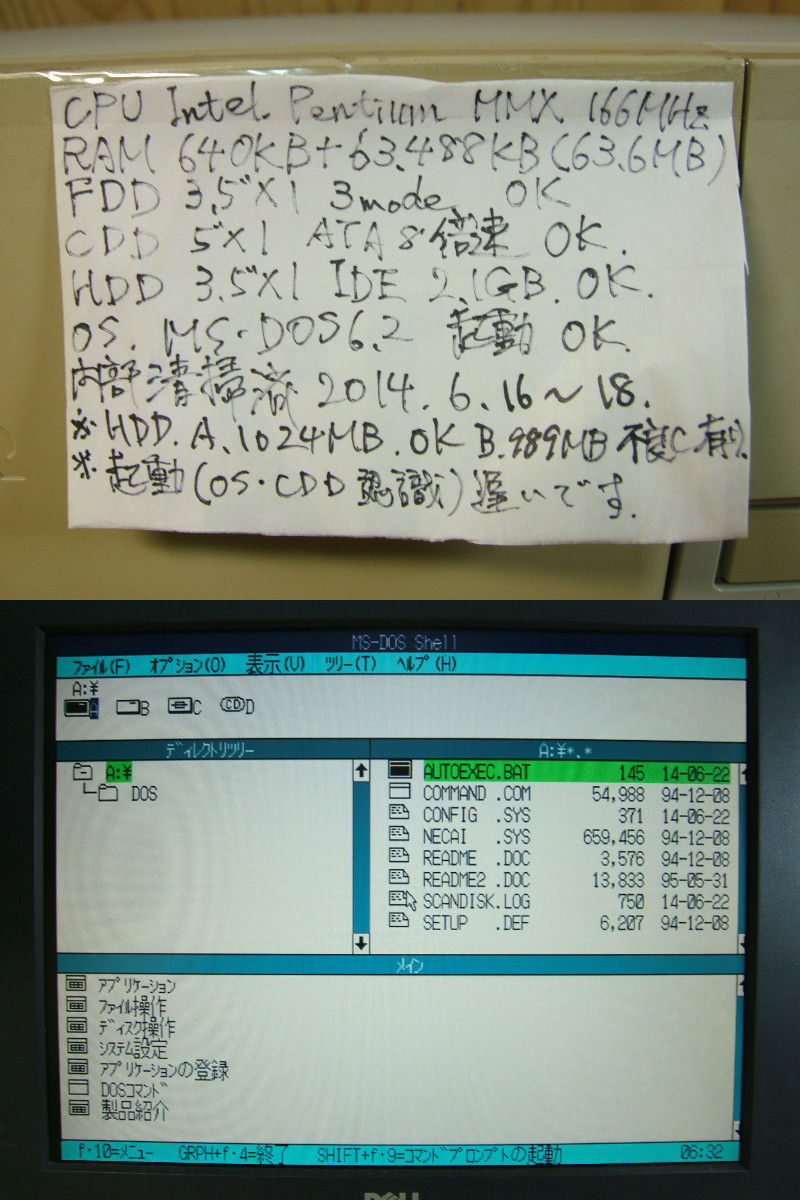 CPU Intel Pentium MMX 166MHz
RAM 640KB+63.488KB(63.6MB)
FDD 3.5"×1 3mode OK
CDD 5"×1 ATA 8倍速 OK.
HDD 3.5"×1 IDE 2.1GB. OK.
OS. MS-DOS6.2 起動 OK.
内部清掃済 2014.6.16~18.
※HDD.A.1024MB.OK B.989MB 不良C有り.
※起動(OS・CDD認識)遅いです.
MS-DOS Shell
ファイル(F) オプション(O) 表示(V) ツリー(T) ヘルプ(H)
A:¥
A B C CD D
ディレクトリツリー
A:¥
DOS
A:¥*.*
AUTOEXEC.BAT 145 14-06-22
COMMAND .COM 54,988 94-12-08
CONFIG .SYS 371 14-06-22
NECAI .SYS 659,456 94-12-08
README .DOC 3,576 94-12-08
README2 .DOC 13,833 95-05-31
SCANDISK.LOG 750 14-06-22
SETUP .DEF 6,207 94-12-08
メイン
アプリケーション
ファイル操作
ディスク操作
システム設定
アプリケーションの登録
DOSコマンド
製品紹介
f・10=メニュー GRPH+f・4=終了 SHIFT+f・9=コマンドプロンプトの起動 06:32
DELL